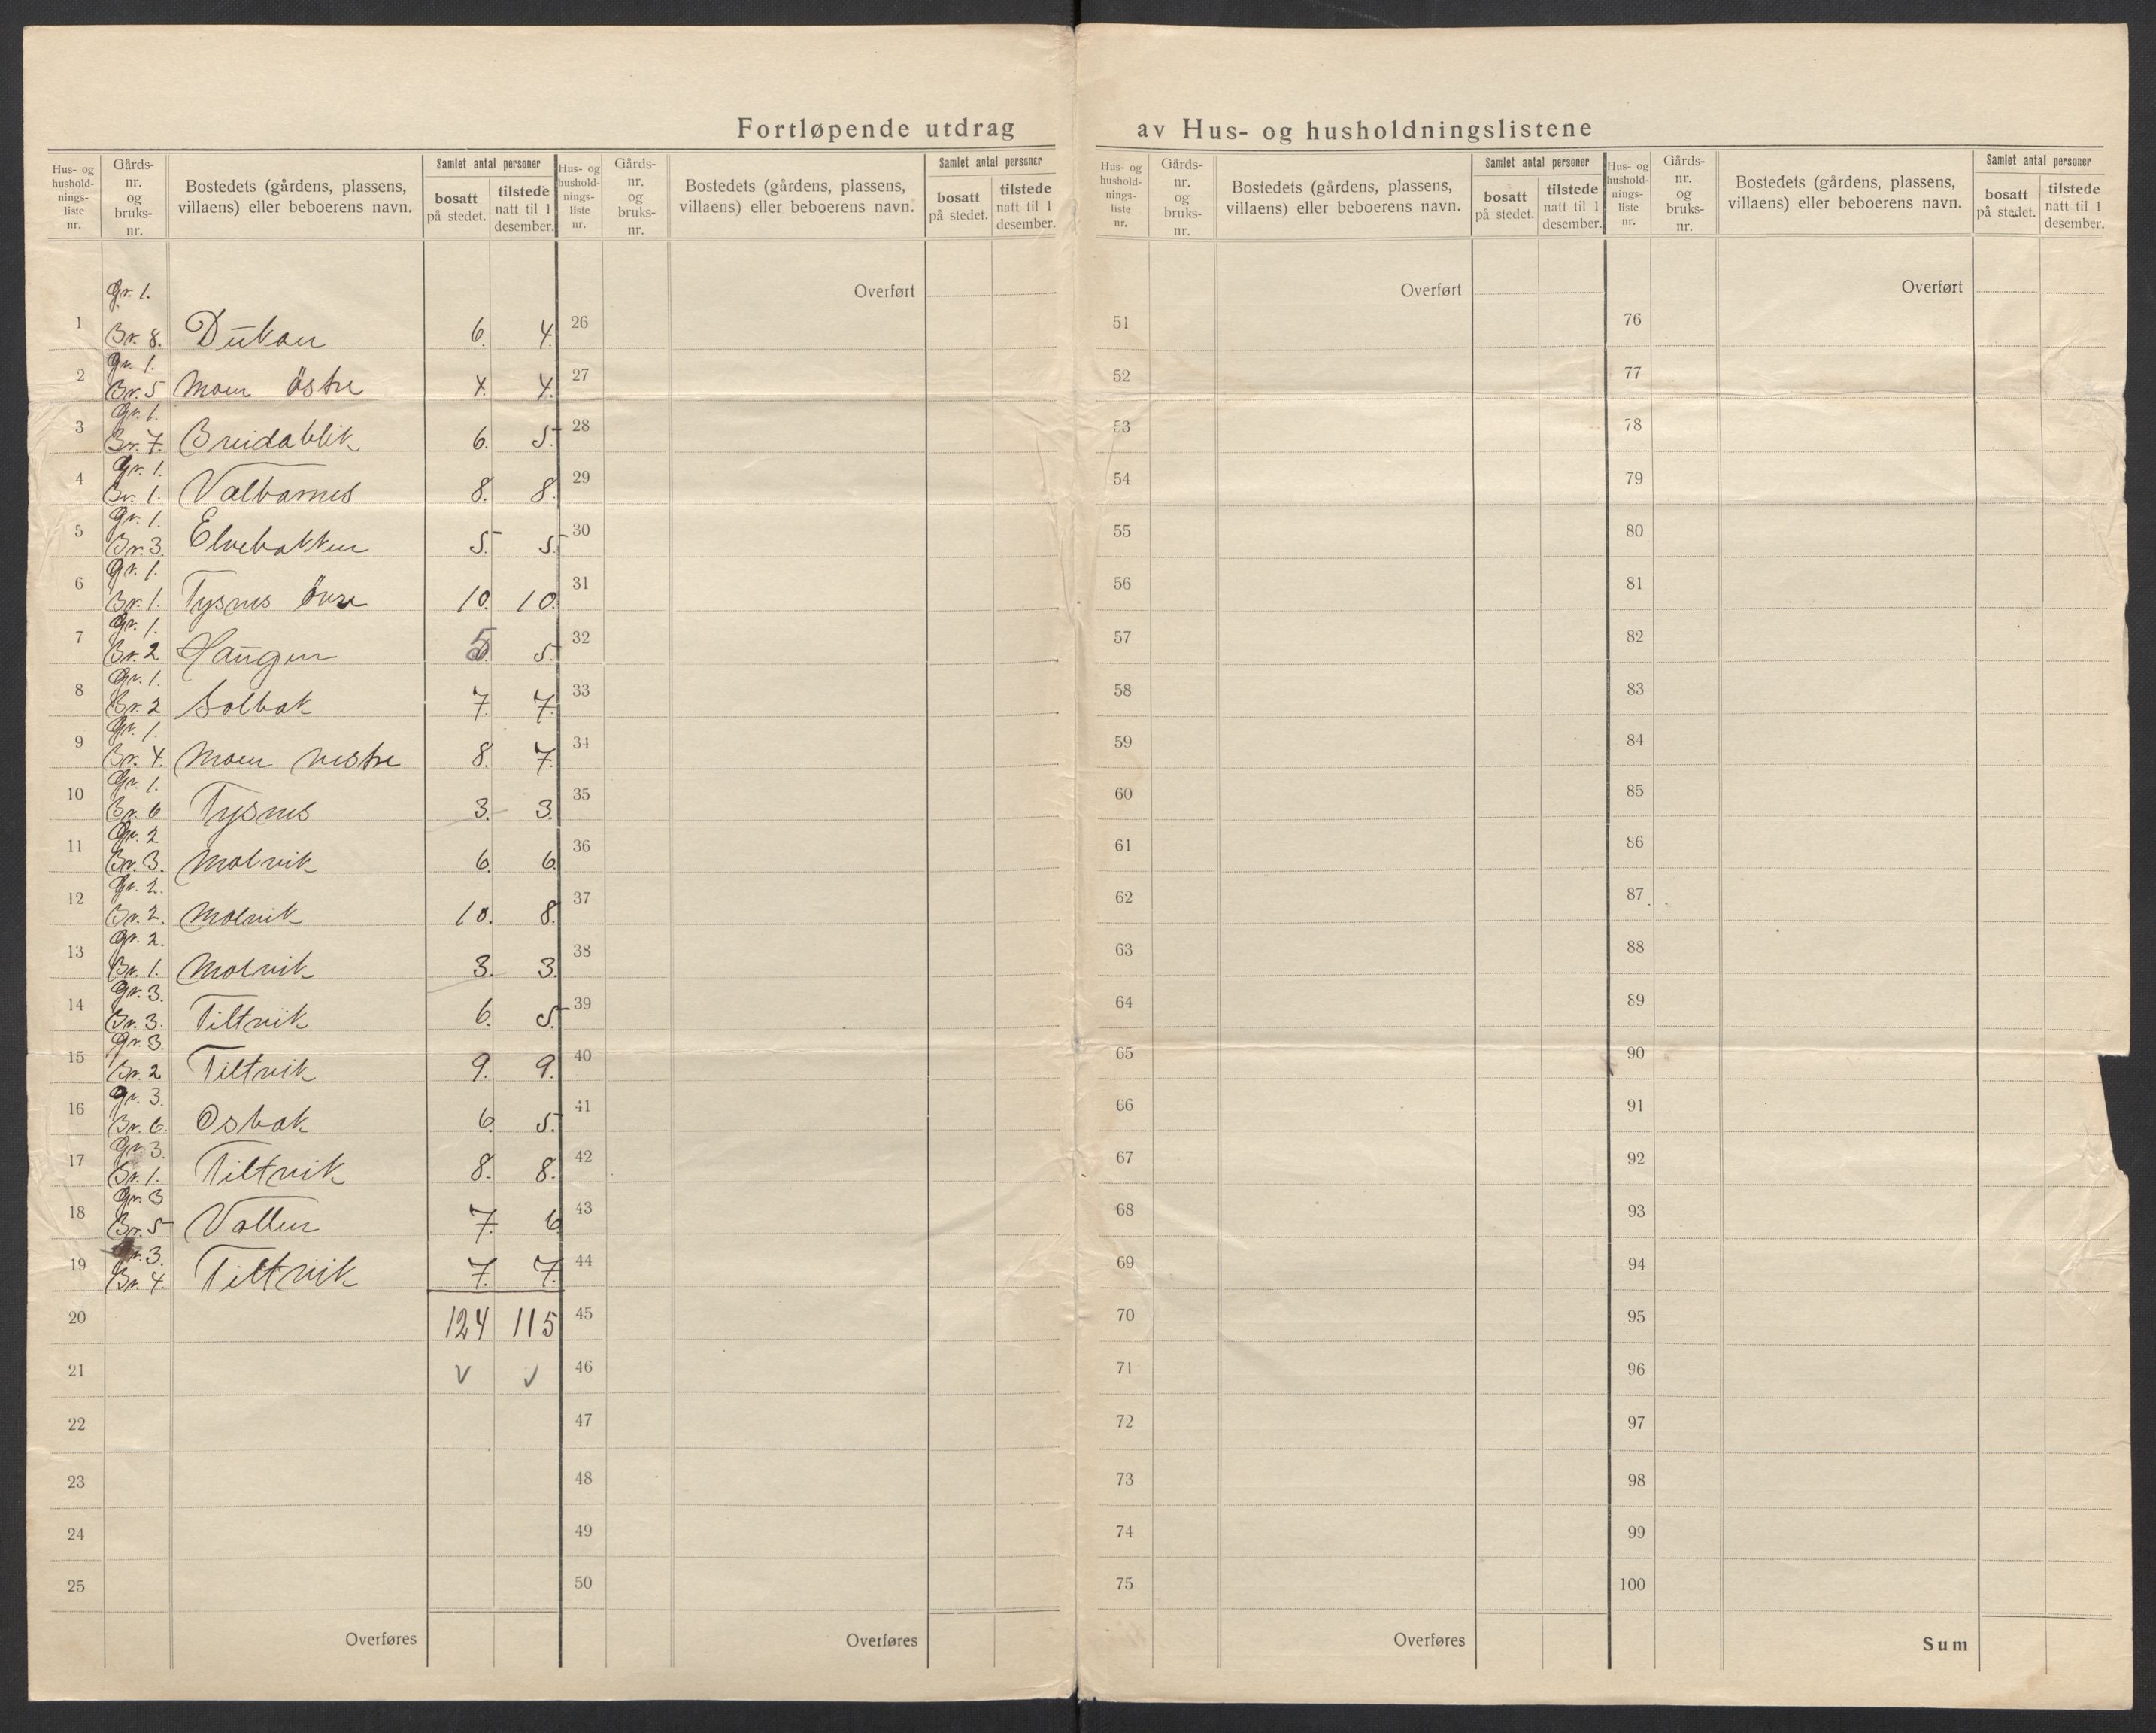 Fortløpende utdrag av Hus- og husholdningslistene
Hus- og husholdningsliste nr. | Gårdsnr. og bruksnr. | Bostedets (gårdens, plassens, villaens) eller beboerens navn. | Samlet antal personer bosatt på stedet. | tilstede natt til 1 desember.
1 Gr. 1. Br. 8. 6. 4.
2 Gr. 1. Br. 5 Moen östre 4. 4.
3 Gr. 1. Br. 7. Breidablik 6. 5.
4 Gr. 1. Br. 1. 8. 8.
5 Gr. 1. Br. 3. Elvebakken 5. 5.
6 Gr. 1. Br. 1. Tysnes övre 10. 10.
7 Gr. 1. Br. 2 Haugen 5 5.
8 Gr. 1. Br. 2 Solbak 7. 7.
9 Gr. 1. Br. 4. Moen vestre 8. 7.
10 Gr. 1. Br. 6 Tysnes 3. 3.
11 Gr. 2 Br. 3. Molvik 6. 6.
12 Gr. 2. Br. 2. Molvik 10. 8.
13 Gr. 2. Br. 1. Molvik 3. 3.
14 Gr. 3. Br. 3. Tiltvik 6. 5.
15 Gr. 3. Br. 2 Tiltvik 9. 9.
16 Gr. 3. Br. 6. Osbak 6. 5.
17 Gr. 3. Br. 1. Tiltvik 8. 8.
18 Gr. 3 Br. 5 Vollen 7. 6
19 Gr. 3. Br. 4. Tiltvik 7. 7.
20 124 115
21 v v
22
23
24
25
Overføres
Hus- og husholdningsliste nr. | Gårdsnr. og bruksnr. | Bostedets (gårdens, plassens, villaens) eller beboerens navn. | Samlet antal personer bosatt på stedet. | tilstede natt til 1 desember.
Overført
26
27
28
29
30
31
32
33
34
35
36
37
38
39
40
41
42
43
44
45
46
47
48
49
50
Overføres
Hus- og husholdningsliste nr. | Gårdsnr. og bruksnr. | Bostedets (gårdens, plassens, villaens) eller beboerens navn. | Samlet antal personer bosatt på stedet. | tilstede natt til 1 desember.
Overført
51
52
53
54
55
56
57
58
59
60
61
62
63
64
65
66
67
68
69
70
71
72
73
74
75
Overføres
Hus- og husholdningsliste nr. | Gårdsnr. og bruksnr. | Bostedets (gårdens, plassens, villaens) eller beboerens navn. | Samlet antal personer bosatt på stedet. | tilstede natt til 1 desember.
Overført
76
77
78
79
80
81
82
83
84
85
86
87
88
89
90
91
92
93
94
95
96
97
98
99
100
Sum